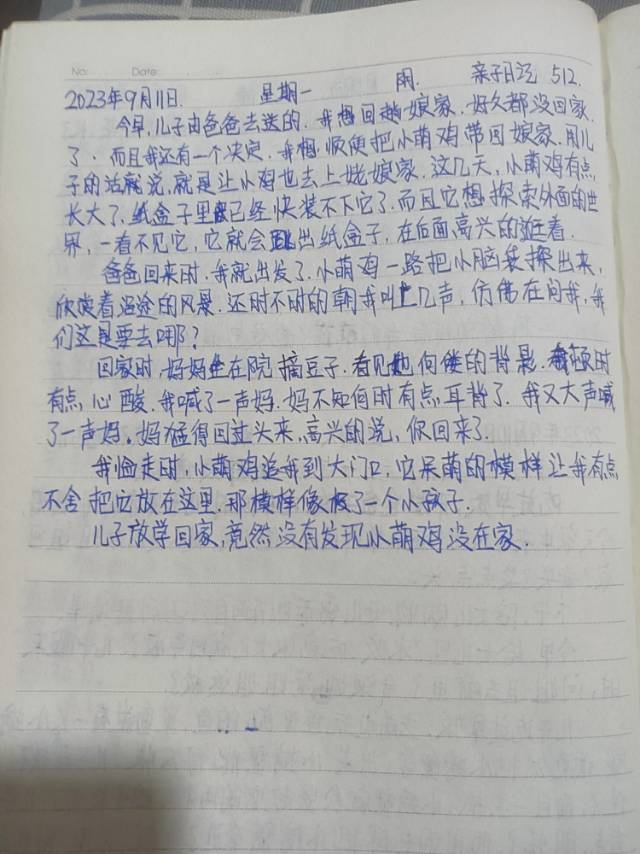 No: Date:
2023年9月11日. 星期一 雨. 亲子日记 512.
今早,儿子由爸爸去送的.我想回趟娘家.好久都没回家
了.而且我还有一个决定.我想顺便把小萌鸡带回娘家.用儿
子的话就说,就是让小鸡也去上姥娘家.这几天,小萌鸡有点
长大了,纸盒子里已经快装不下它了.而且它想探索外面的世
界,一看不见它,它就会跳出纸盒子,在后面高兴的逛着.
爸爸回来时.我就出发了.小萌鸡一路把小脑袋探出来,
欣赏着沿途的风景.还时不时的朝我叫上几声,仿佛在问我,我
们这是要去哪?
回家时.妈妈坐在院摘豆子.看见她佝偻的背影.我顿时
有点心酸.我喊了一声妈.妈不知何时有点耳背了.我又大声喊
了一声妈。妈猛得回过头来,高兴的说,你回来了.
我临走时,小萌鸡追我到大门口,它呆萌的模样让我有点
不舍把它放在这里.那模样像极了一个小孩子.
儿子放学回家,竟然没有发现小萌鸡没在家.